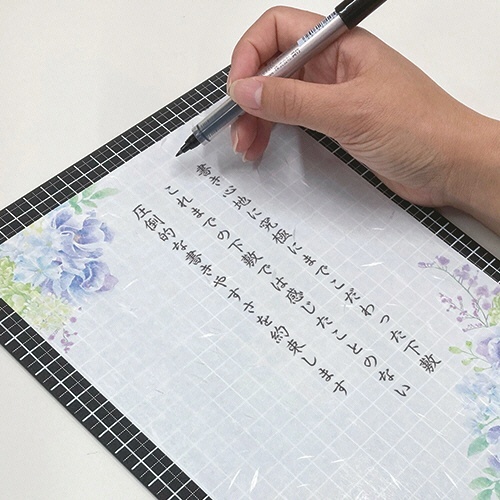 書き心地に究極にまでこだわった下敷
これまでの下敷では感じたことのない
圧倒的な書きやすさを約束します